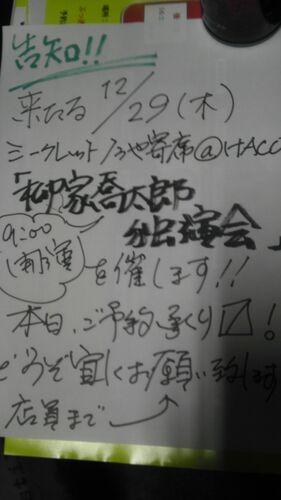 告知!!
来たる 12/29(木)
シークレット
寄席@HACO
「柳家喬太郎
独演会」
9:00
開演
を催します!!
本日、ご予約承り〼!
どうぞ宜しくお願い致します
店員まで